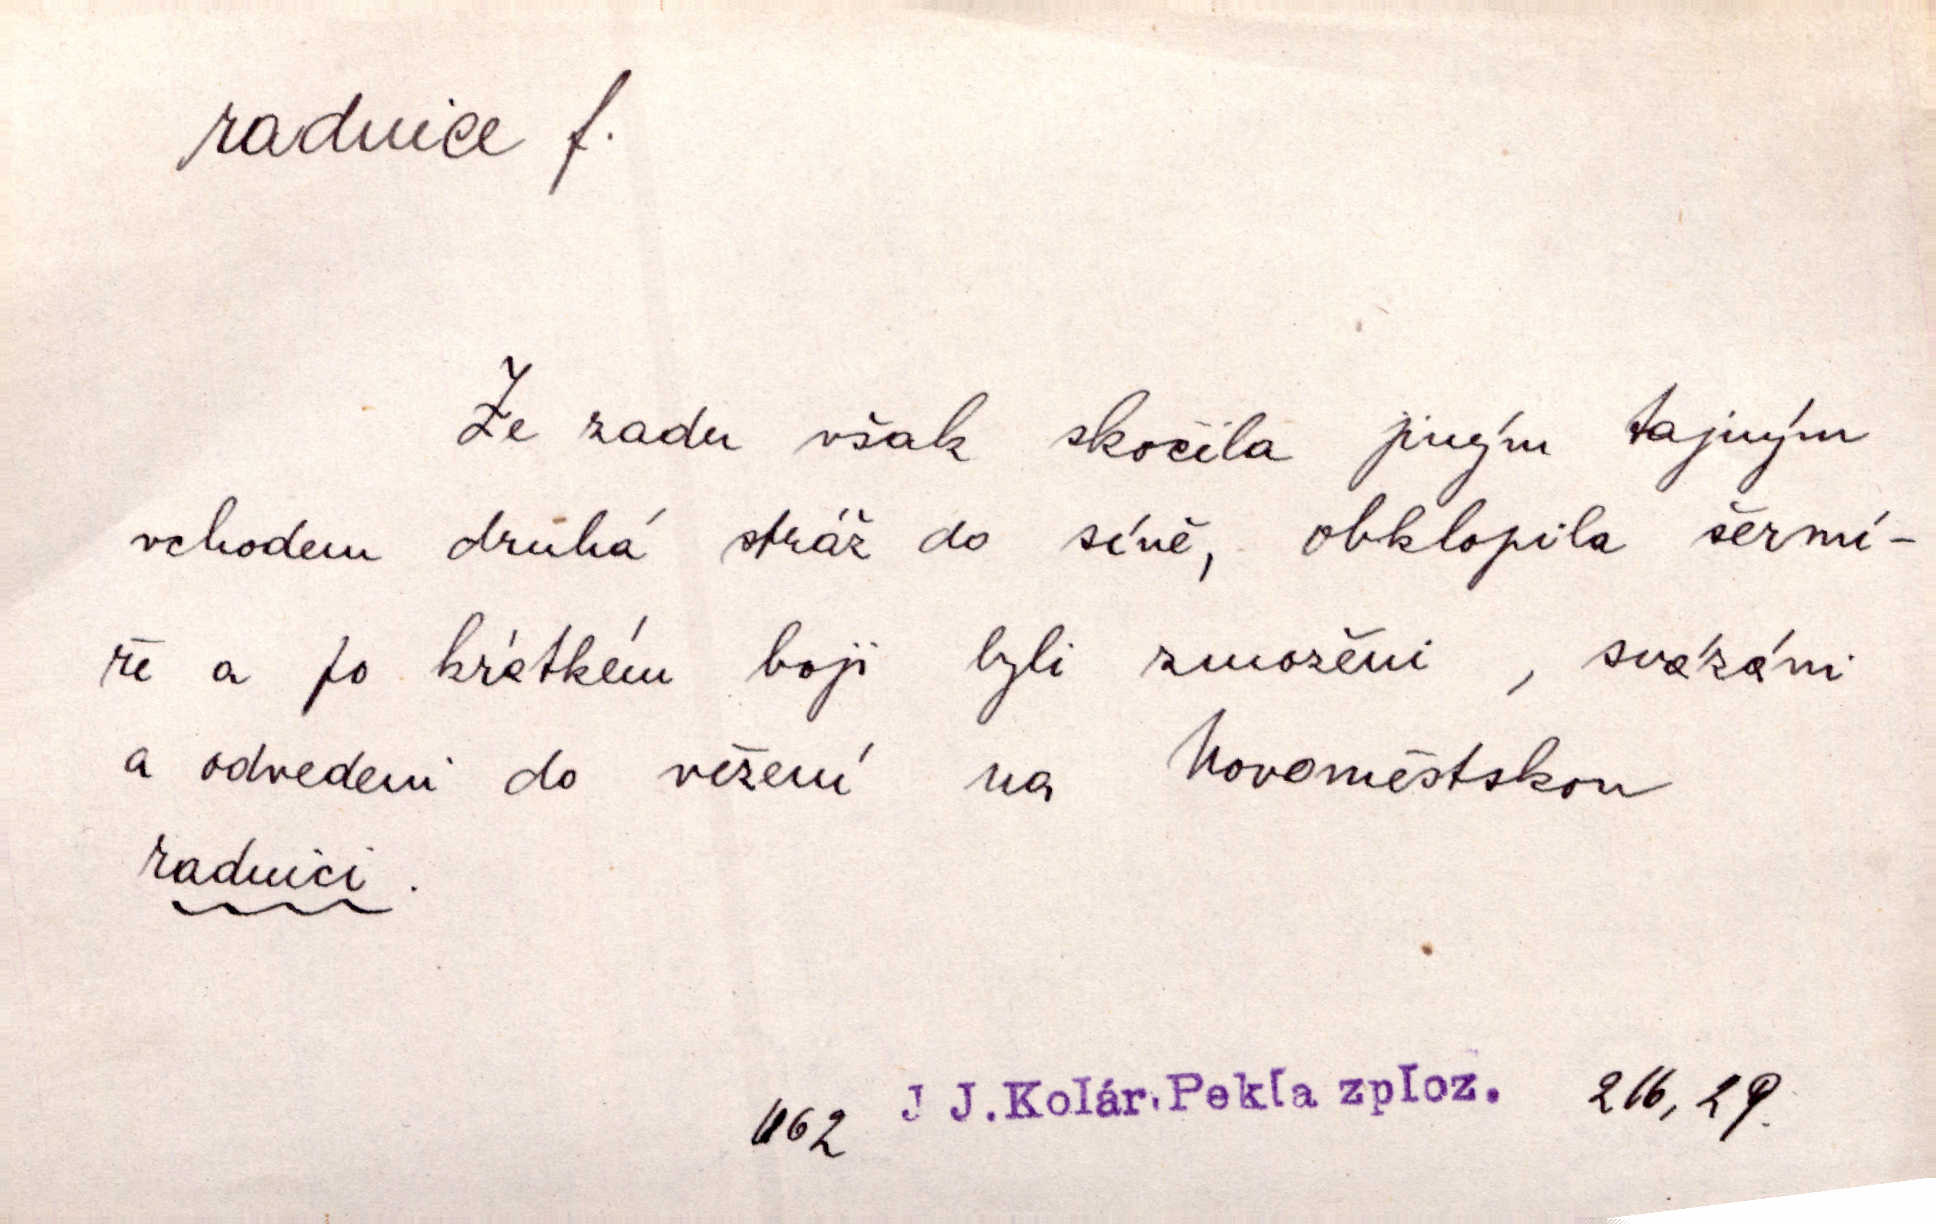 radnice f.
Že zadu však skočila jiným tajným
vchodem druhá stráž do síně, obklopila šermí-
ře a po krátkém boji byli zmoženi, svázáni
a odvedeni do vězení na Novoměstskou
radnici.
J J.Kolár.Pekla zploz. 216, 29.